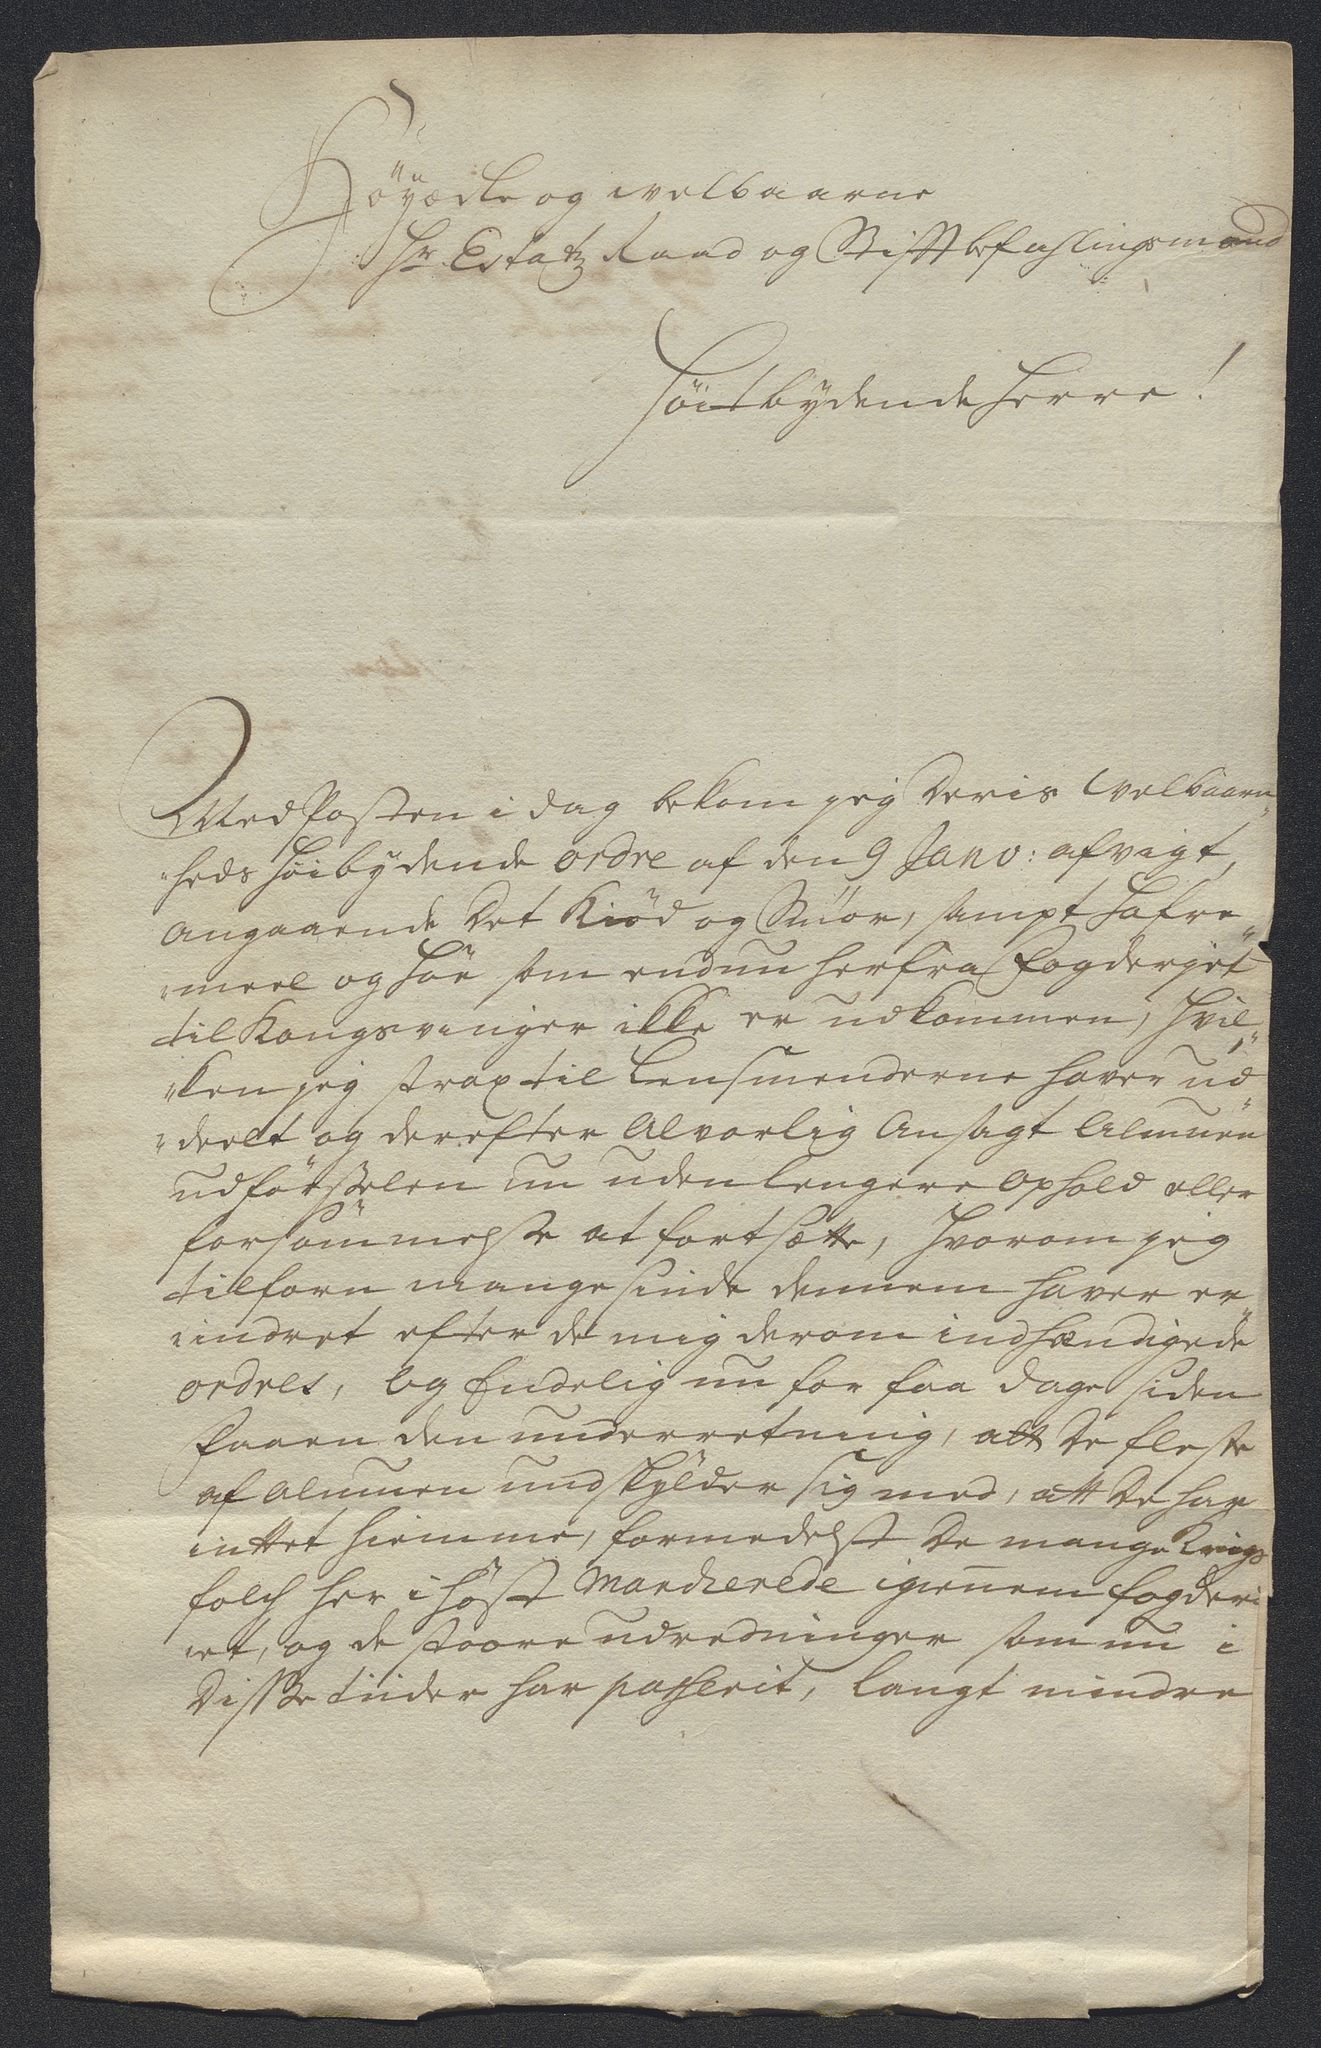 Höyædle og welbaarne
Hr Estatz Raad og Stiftbefahlingsmand
Höitbydende Herre!
Med Posten i dag bekom jeg Deris Welbaarn„
„heds höibydende ordre af den 9 Janv: afvigt,
angaaende Det Kiöd og Smör, sampt Hafre
„meel og höe som endnu herfra Fogderjet
til Kongsvinger ikke er udkommen, hvil„
„ken jeg strax til Lensmenderne haver ud
„deelt og derefter Alvorlig Ansagt Almuen
udförßelen nu uden lengere Ophold eller
forsömmelße at fortsætte, hvorom jeg
tilforn mange sinde dennem haver er
„indret efter de mig derom indhændigede
ordres, og Endelig nu for faa dage siden
Faaen den underretning, att De fleste
af almuen undskylder sig med, att De har
inttet hiemme, formedelst De mange Krigs
folch her i höst Marcherede igienem fogderi
„et, og de stoore udredninger som nu i
Disse tiider har passerit, langt mindre